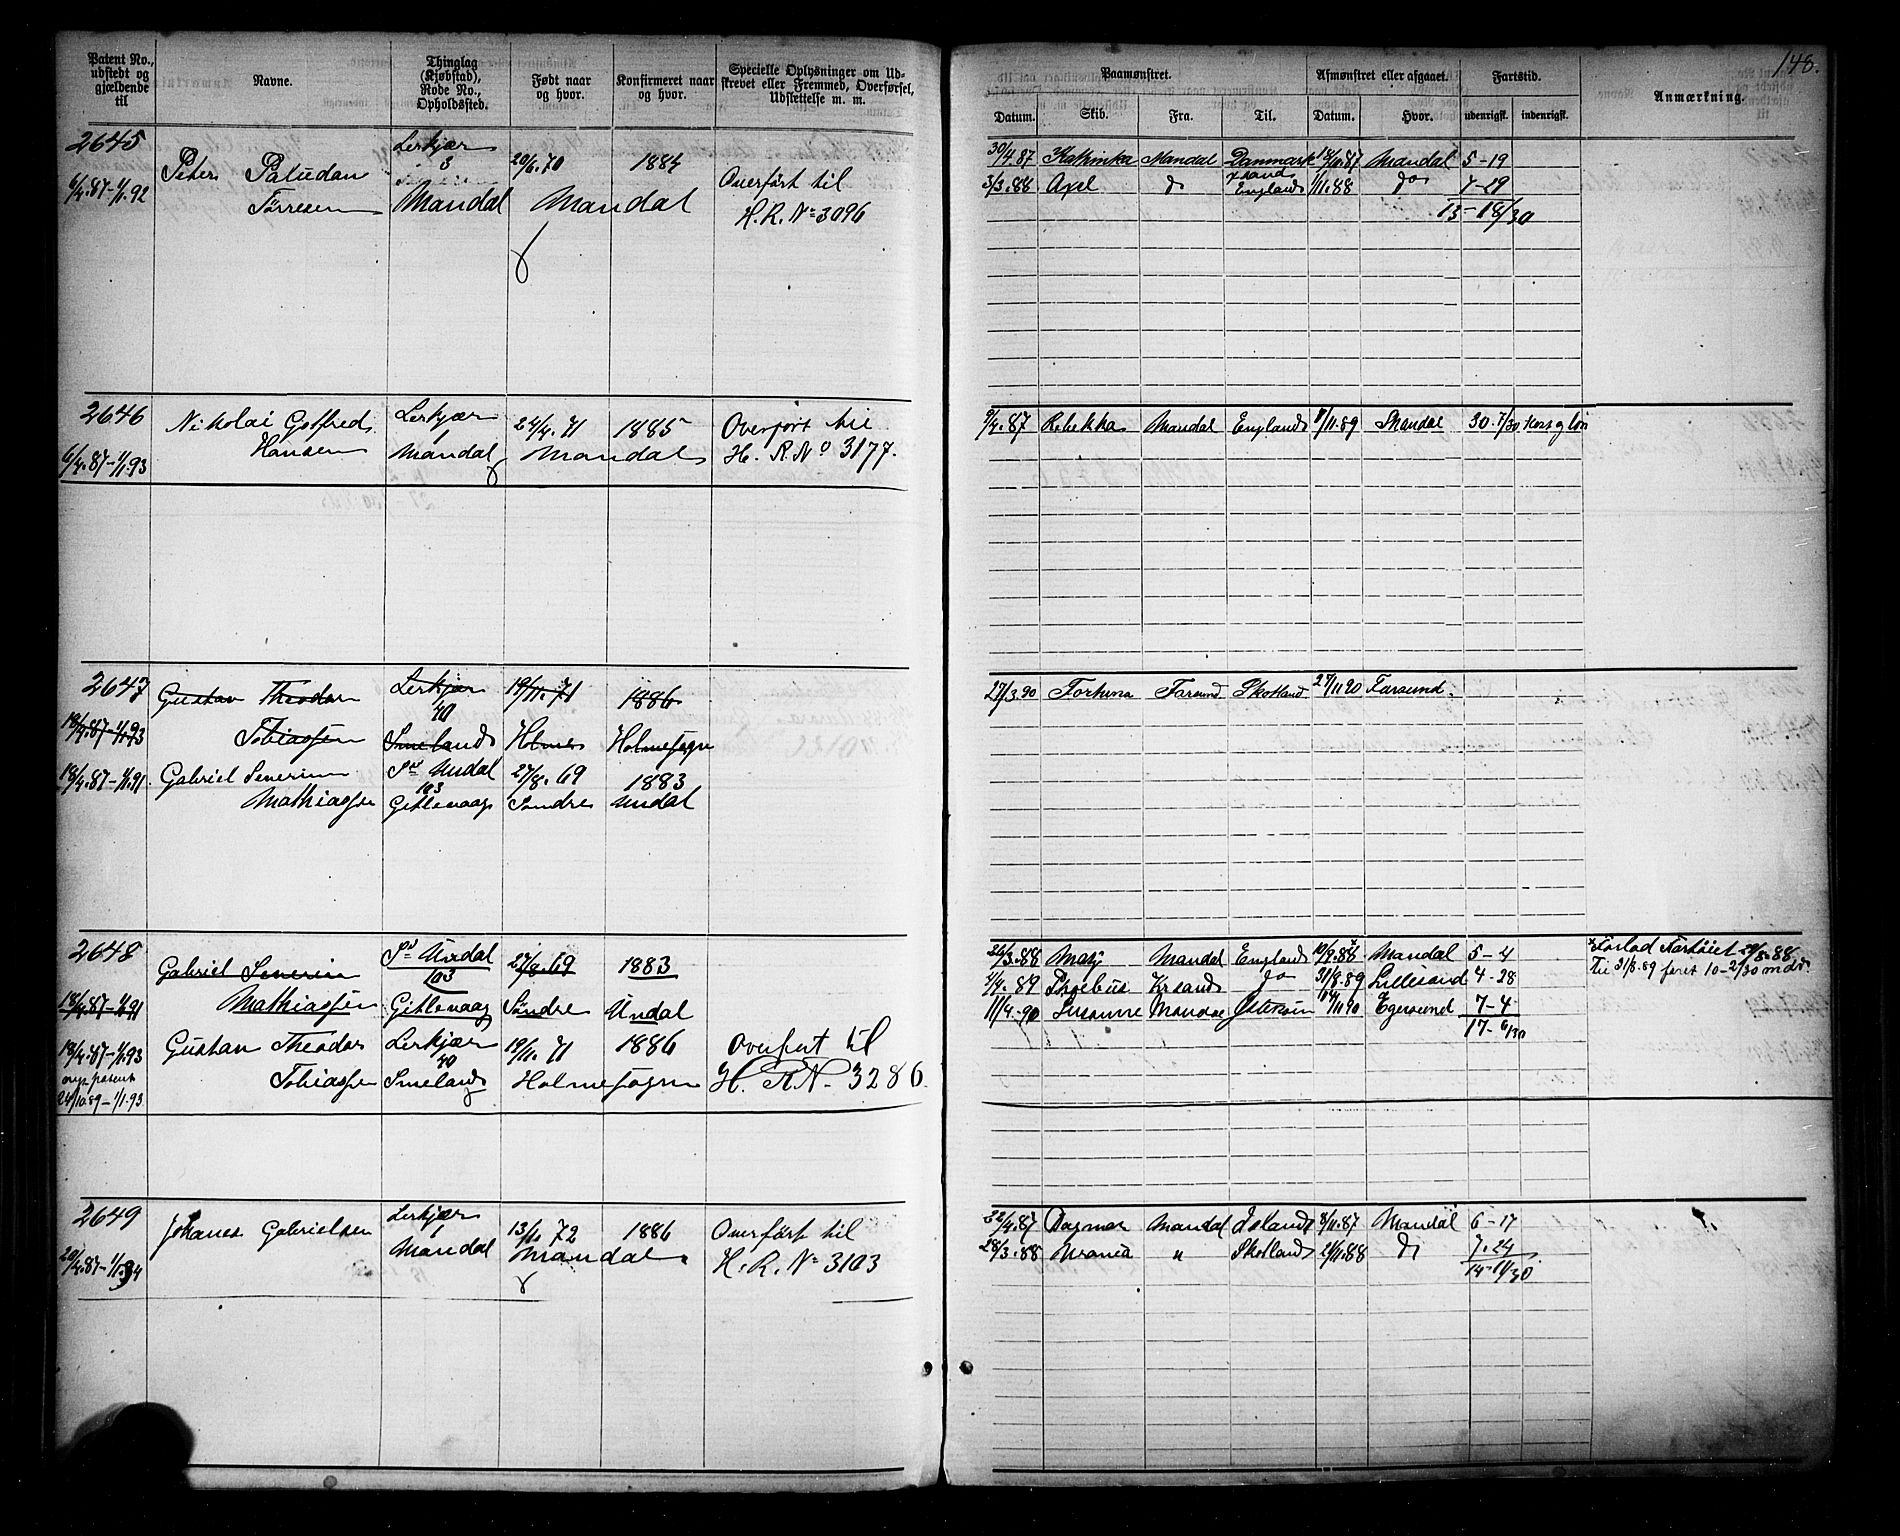 148.
Patent No., udstedt og gjældende til
Navne.
Thinglag (Kjøbstad), Rode No., Opholdssted.
Født naar og hvor.
Konfirmeret naar og hvor.
Specielle Oplysninger om Udskrevet eller Fremmed, Overførsel, Udslettelse m. m.
Paamønstret.
Afmønstret eller afgaaet.
Fartstid.
Anmærkning.
Datum. Skib. Fra. Til. Datum. Hvor. udenrigsk. indenrigsk.
2645
6/4.87-1/1.92
Peter Paludan
Tørresen
Lerkjær
3
Mandal
20/6.70
Mandal
1884
Overført til
H. R. No 3096
30/4.87 Kathinka Mandal Danmark Mandal 5-19
3/3.88 Axel do England 1/11.88 do 7-29
13-18/30
2646
6/4.87-1/1.93
Nikolai Gotfred
Hansen
Lerkjær
1
Mandal
24/4.71 1885
Mandal
Overført til
H. R. No 3177.
9/4.87 Rebekka Mandal England 7/11.89 Mandal 30.7/30
2647
18/4.87-1/1.93
Gustav Theodor
Tobiassen
Lerkjær
40
Smeland
19/11.71 1886
Holme Holme sogn
18/4.87-1/1.91
Gabriel Severin
Mathiassen
Sdr Undal
103
Gitlevaag
27/8.69 1883
Søndre Undal
27/3.90 Fortuna Farsund Skotland 27/11.90 Farsund
2648
18/4.87-1/1.91
Gabriel Severin
Mathiassen
Sdr Undal
103
Gitlevaag
27/8.69 1883
Søndre Undal
18/4.87-1/1.93
nyt patent
24/10.89-1/1.93
Gustav Theodor
Tobiassen
Lerkjær
40
Smeland
19/11.71 1886
Holme sogn
Overført til
H. R. N. 3286.
26/3.88 Mandal England Mandal 5-4
Forlod Fartøiet 29/8-88
4/4.89 Phoebus Krsand do 31/8.89 Lillesand 4-28
Til 31/8.89 faret 10-2/30 mdr.
11/4.90 Susanne Mandal Østersøen Egersund 7-4
17-6/30
2649
20/4.87-1/1.94
Johanes Gabrielsen
Lerkjær
1
Mandal
13/1.72 1886
Mandal
Overført til
H. R. No 3103
22/4.87 Dagmar Mandal Island 8/11.87 Mandal 6-17
28/3.88 Urania " Skotland 21/11.88 do 7.24
14-11/30